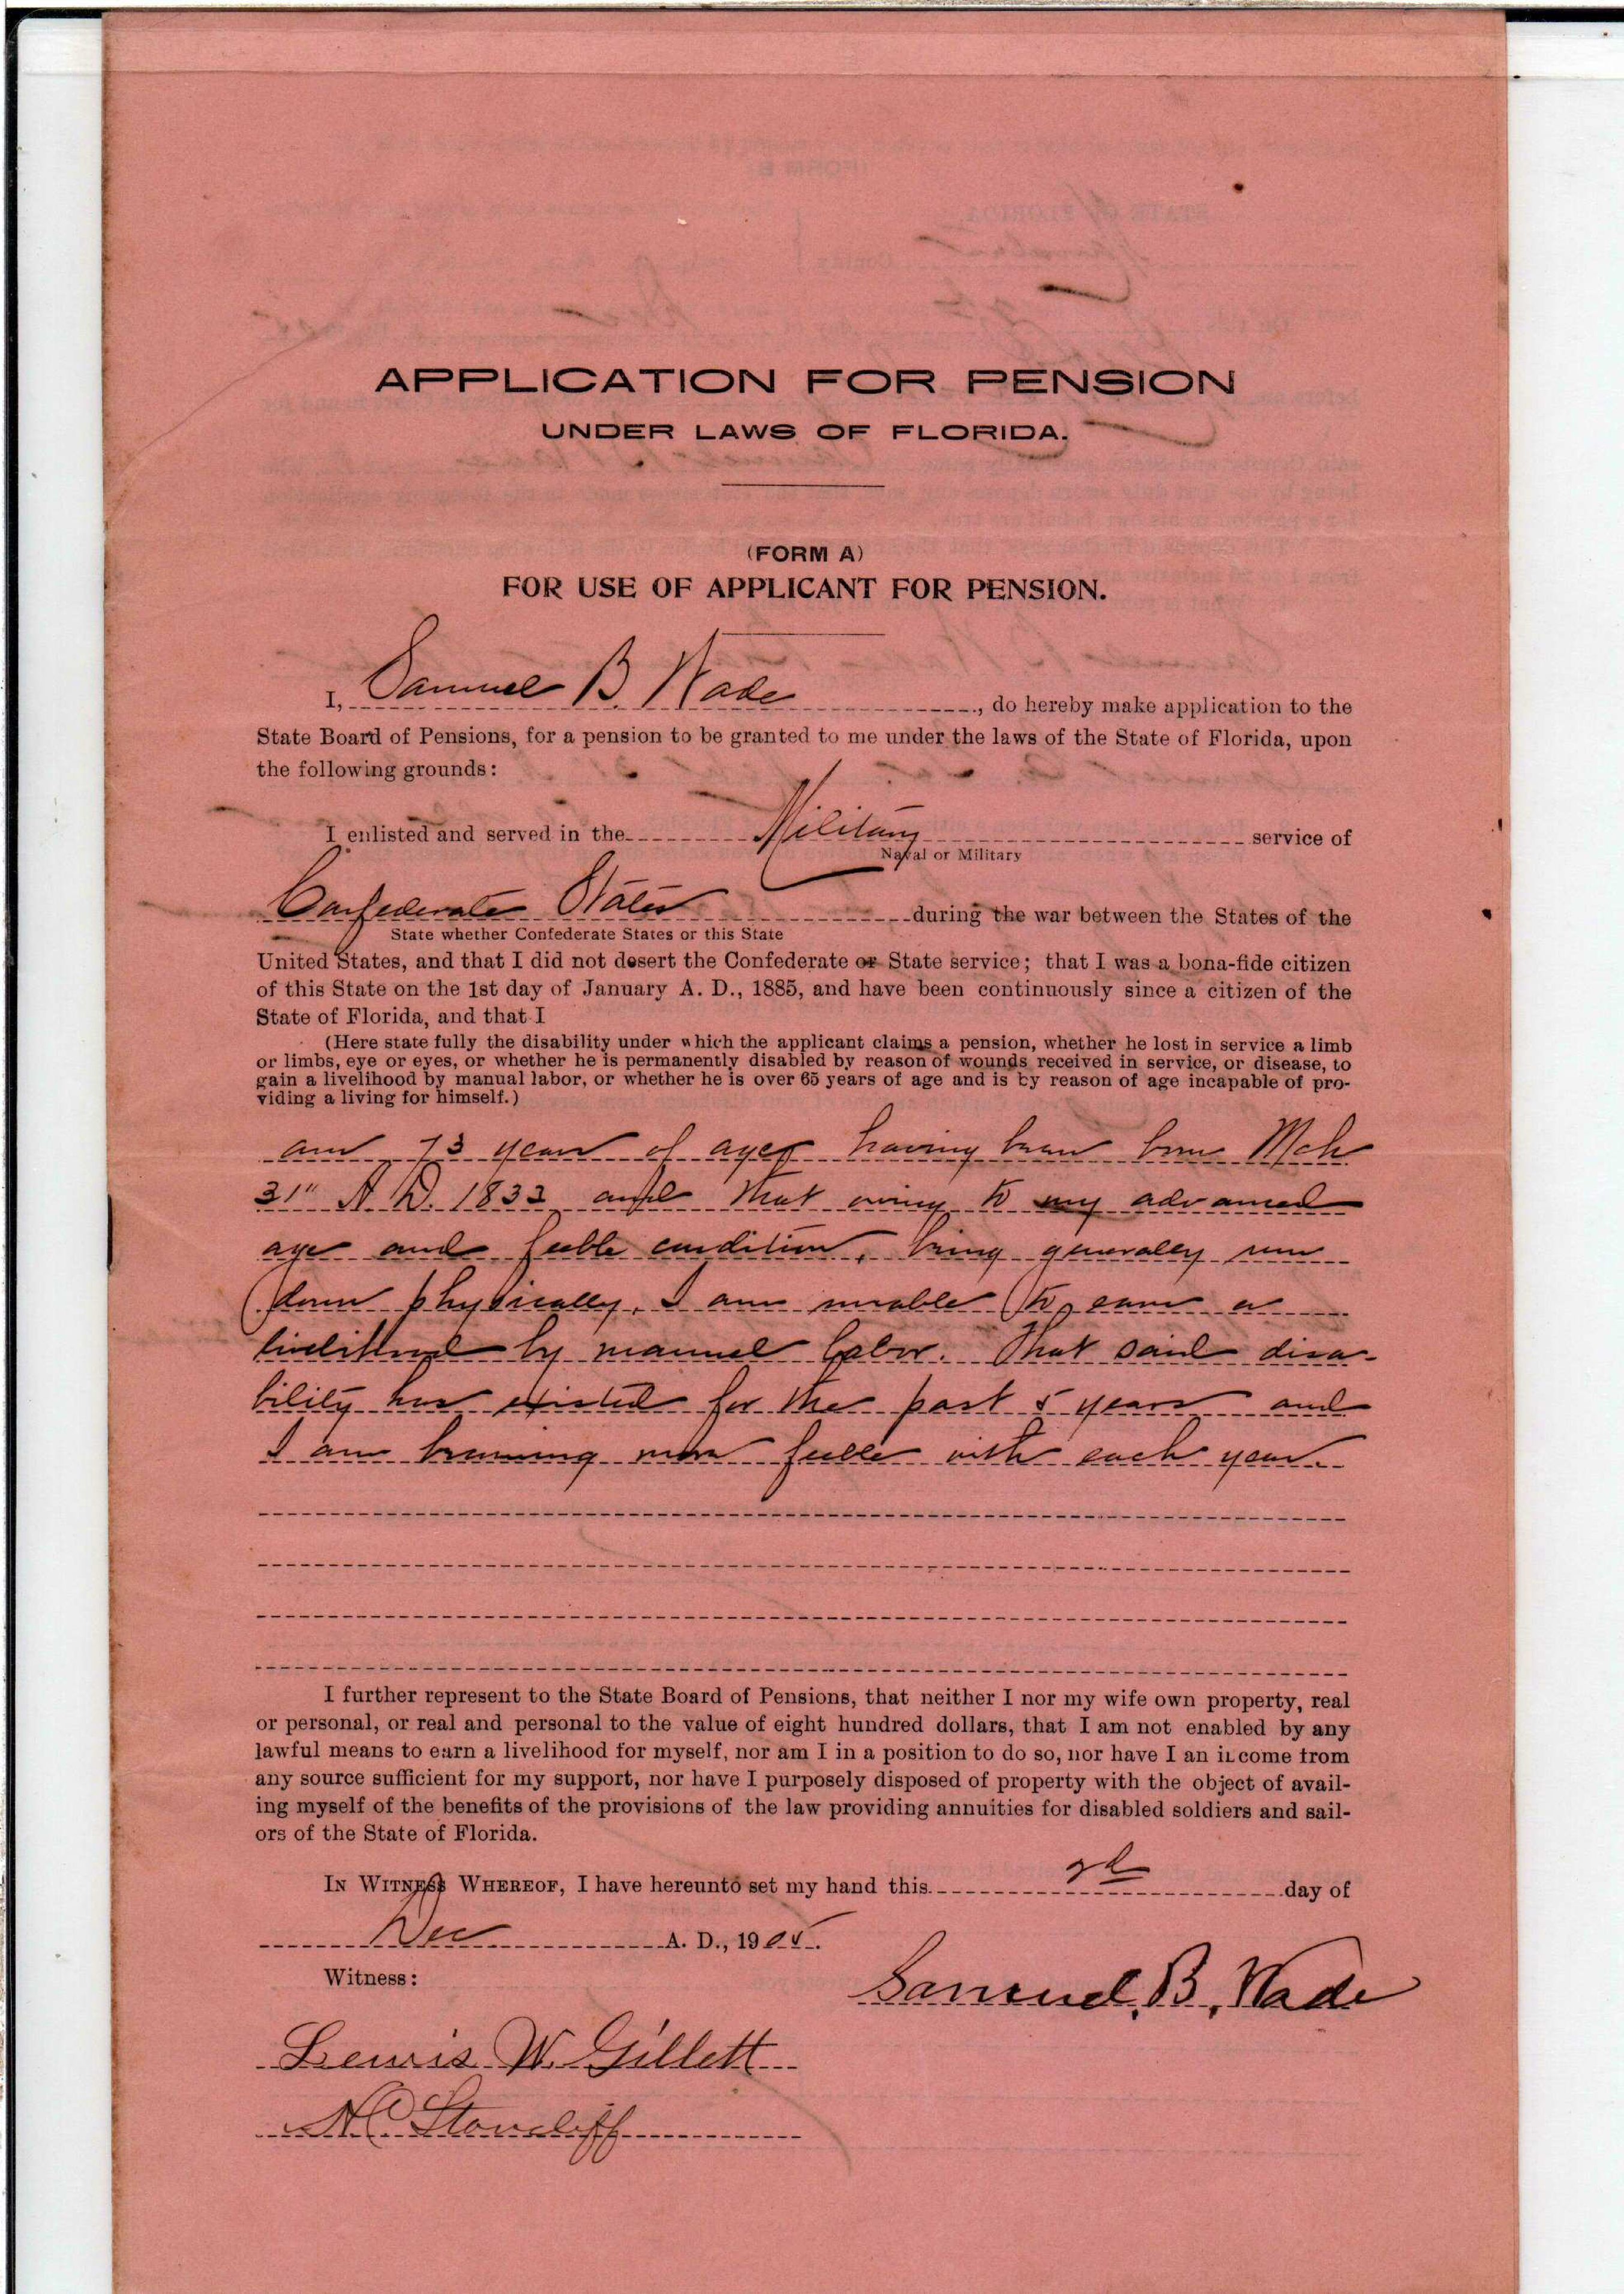 APPLICATION FOR PENSION
UNDER LAWS OF FLORIDA.
(FORM A)
FOR USE OF APPLICANT FOR PENSION.
I, Samuel B. Wade, do hereby make application to the
State Board of Pensions, for a pension to be granted to me under the laws of the State of Florida, upon
the following grounds:
I enlisted and served in the Military service of
Naval or Military
Confederate States during the war between the States of the
State whether Confederate States or this State
United States, and that I did not desert the Confederate or State service; that I was a bona-fide citizen
of this State on the 1st day of January A. D., 1885, and have been continuously since a citizen of the
State of Florida, and that I
(Here state fully the disability under which the applicant claims a pension, whether he lost in service a limb
or limbs, eye or eyes, or whether he is permanently disabled by reason of wounds received in service, or disease, to
gain a livelihood by manual labor, or whether he is over 65 years of age and is by reason of age incapable of pro-
viding a living for himself.)
am 73 years of age, having been born Mch
31" A. D. 1833 and that owing to my advanced
age and feeble condition, being generally run
down physically, I am unable to earn a
livelihood by manuel labor. That said disa-
bility has existed for the past 5 years and
I am becoming more feeble with each year.
I further represent to the State Board of Pensions, that neither I nor my wife own property, real
or personal, or real and personal to the value of eight hundred dollars, that I am not enabled by any
lawful means to earn a livelihood for myself, nor am I in a position to do so, nor have I an income from
any source sufficient for my support, nor have I purposely disposed of property with the object of avail-
ing myself of the benefits of the provisions of the law providing annuities for disabled soldiers and sail-
ors of the State of Florida.
IN WITNESS WHEREOF, I have hereunto set my hand this 2d day of
Dec A. D., 1905.
Witness:
Samuel. B. Wade
Lewis W. Gillett